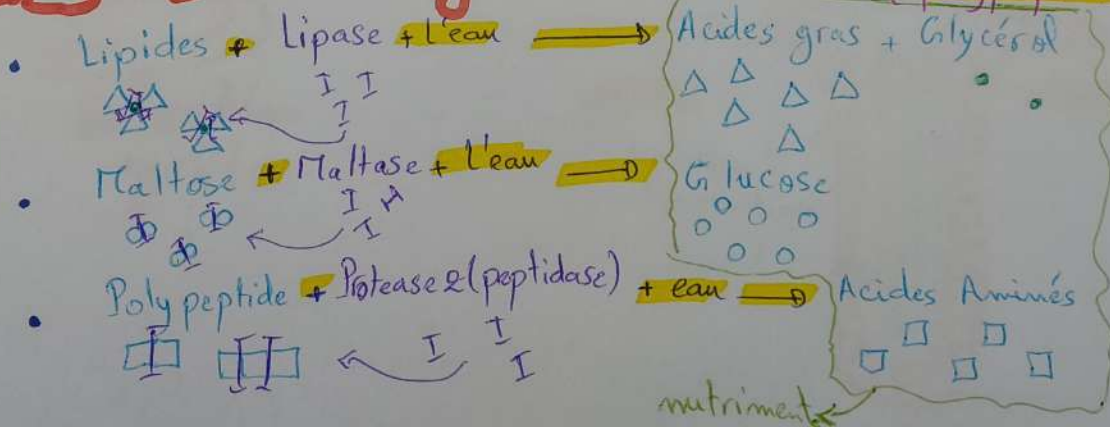 • Lipides + Lipase + l'eau → Acides gras + Glycérol
• Maltose + Maltase + l'eau → Glucose
• Polypeptide + Protease 2 (peptidase) + eau → Acides Aminés
nutriments